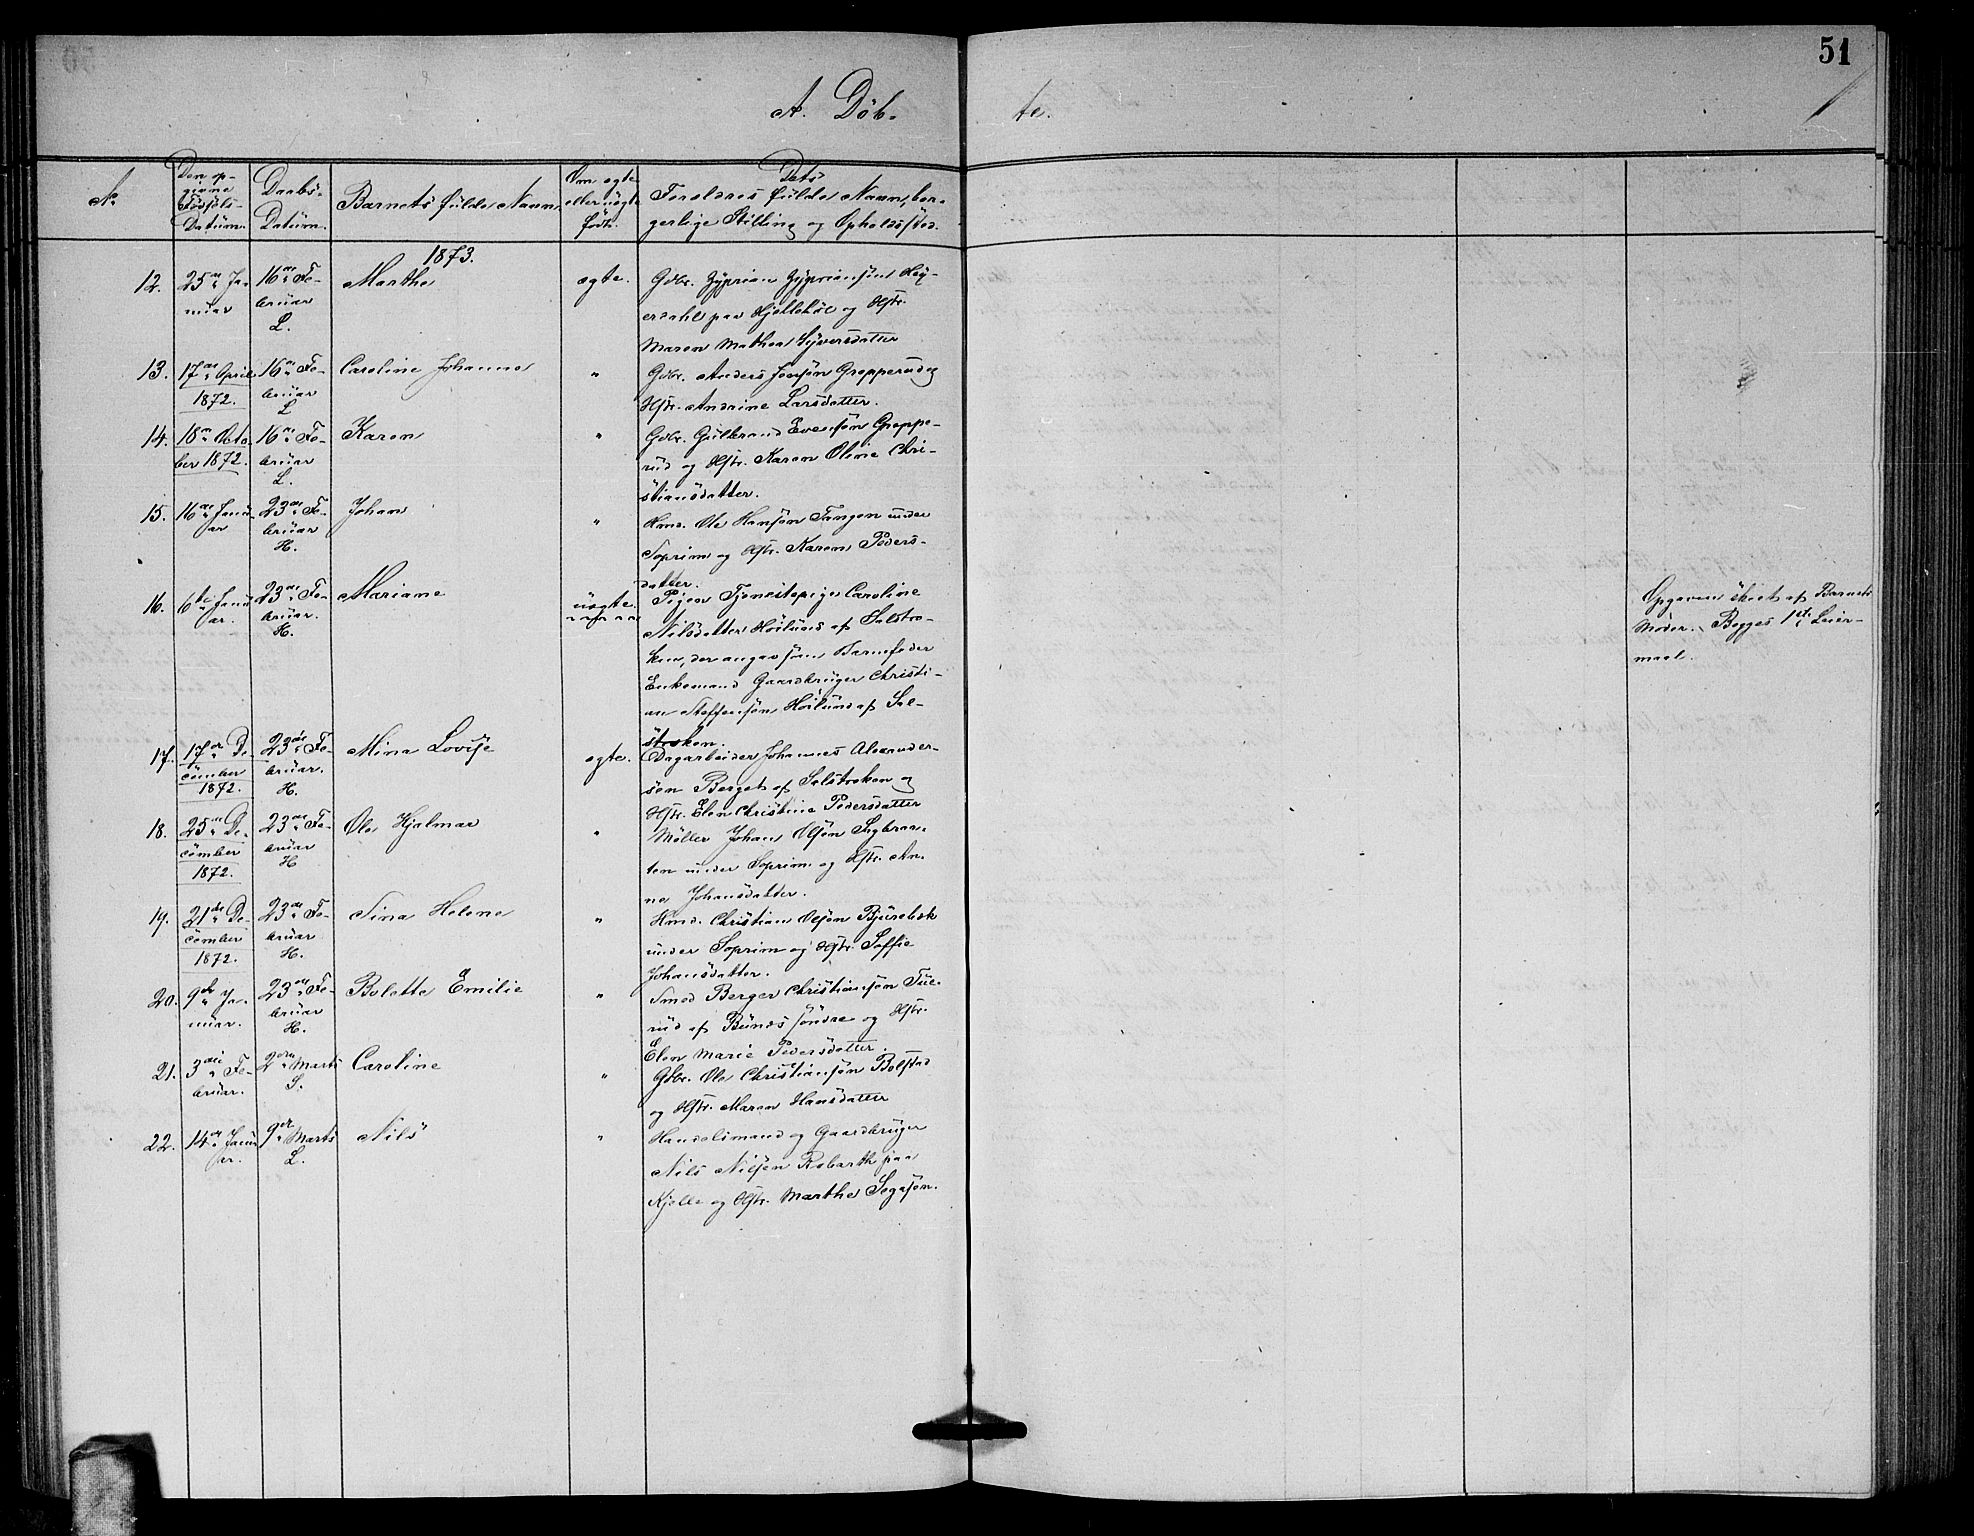 51
A. Döb- te.
No
Den op-
givne
Födsels-
Datum.
Daabs-
Datum.
Barnets fulde Navn.
Om ægte
eller uægte
födt.
Dets
Forældres fulde Navn, bor-
gerlige Stilling og Opholdssted.
1873.
12. 25de Ja-
nuar
16de Fe-
bruar
L.
Marthe
ægte.
Gdbr. Zyprian Zypriansön Hey-
erdahl paa Hjellebøl og Hstr.
Maren Mathea Syversdatter
13. 17de April
1872.
16de Fe-
bruar
L
Caroline Johanne
"
Gdbr. Anders Jensön Gropperud og
Hstr. Andrine Larsdatter.
14. 18de Octo-
ber 1872.
16de Fe-
bruar
L.
Karen
"
Gdbr. Gulbrand Evensön Groppe-
rud og Hstr. Karen Oline Chri-
stiansdatter.
15. 16de Janu-
ar
23de Fe-
bruar
H.
Johan
"
Hmd. Ole Hansön Tangen under
Soprim og Hstr. Karen Peders-
datter.
16. 6te Janu-
ar.
23de Fe-
bruar.
H.
Mariane
uægte.
Pigen Tjenestepige Caroline
Nilsdatter Höilund af Solstro-
ken, der angav som Barnefader
Enkemand Gaardbruger Christi-
an Steffensön Höilund af Sol-
stroken.
Opgaven skeet af Barnets
Moder. Begges 1ste Leier-
maal.
17. 17de De-
cember
1872.
23de Fe-
bruar.
H.
Mina Lovise
ægte.
Dagarbeider Johannes Alexander-
sön Berget af Solstroken og
Hstr. Elen Christine Pedersdatter
18. 25de De-
cember
1872.
23de Fe-
bruar
H
Ole Hjalmar
"
Møller Johan Olsön Sagbraa-
ten under Soprim og Hstr. An-
ne Johansdatter.
19. 21de De-
cember
1872.
23de Fe-
bruar
H.
Sina Helene
"
Hmd. Christian Olsön Bjurebæk
under Soprim og Hstr. Soffie
Johansdatter.
20. 9de Ja-
nuar.
23de Fe-
bruar
H.
Bolette Emilie
"
Smed Berger Christiansön Tue-
rud af Bunæs söndre og Hstr.
Elen Marie Pedersdatter.
21. 3die Fe-
bruar.
2den Marts
S.
Caroline
"
Gdbr. Ole Christiansön Bolstad
og Hstr. Maren Hansdatter
22. 14de Janu-
ar.
9de Marts
L.
Nils
"
Handelsmand og Gaardbruger
Nils Nilsen Robarth paa
Kjelle og Hstr. Marthe Segesön.